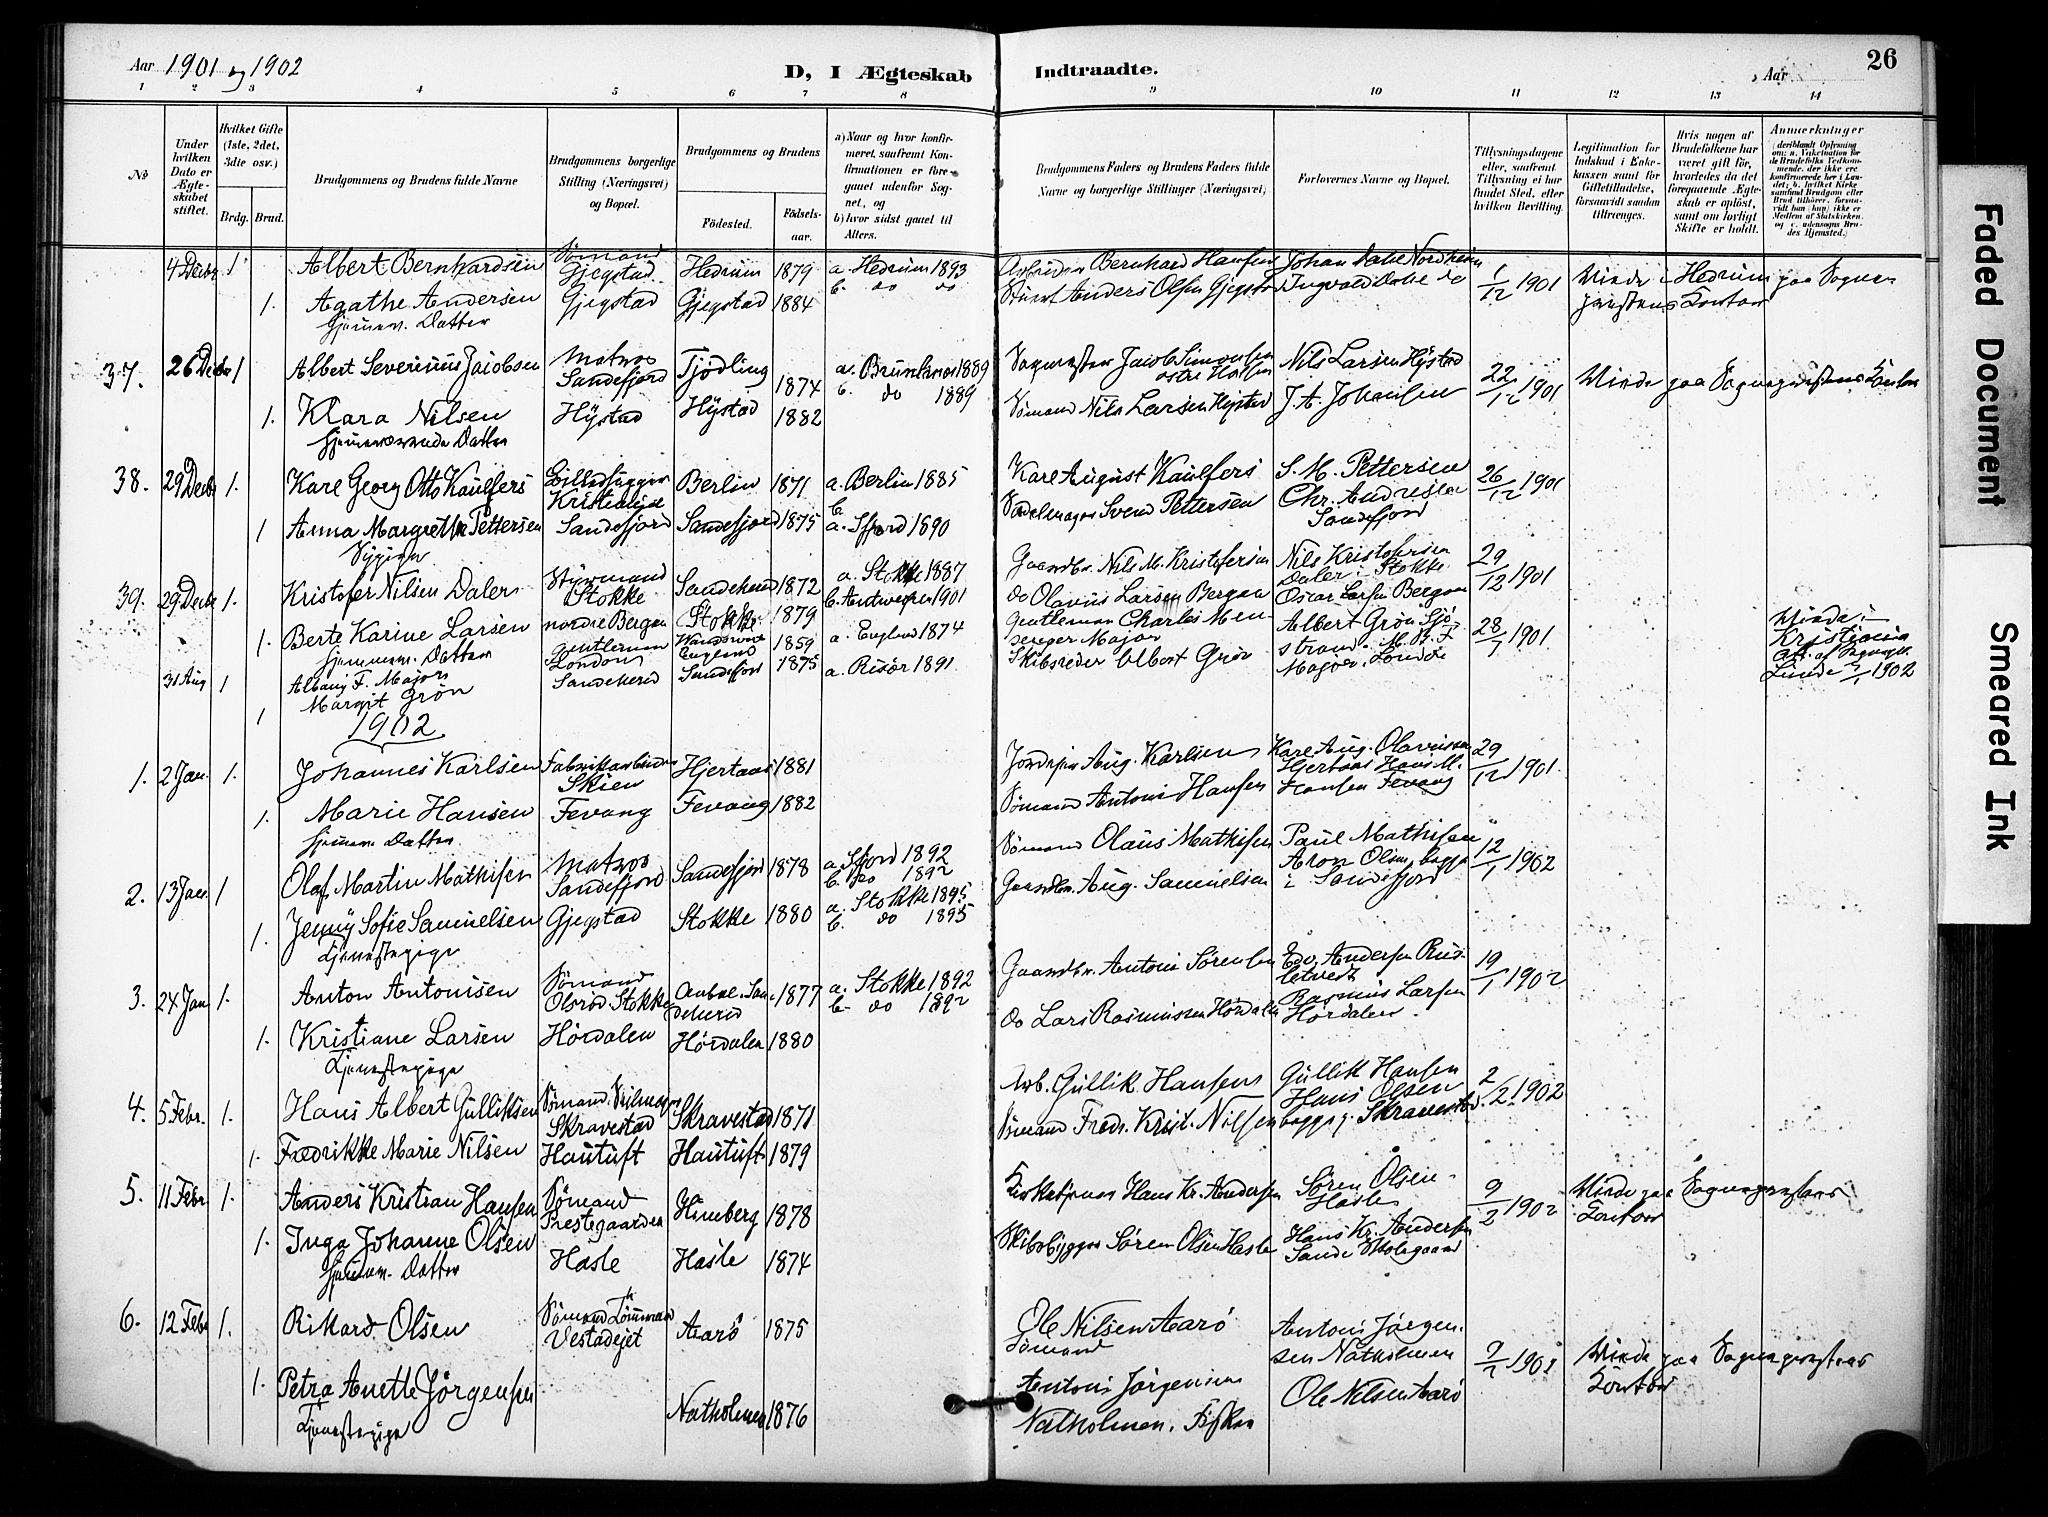 Aar 1901 og 1902
D, I Ægteskab Indtraadte.
Aar
26
1 2 3 4 5 6 7 8 9 10 11 12 13 14
No
Under hvilken Dato er Ægteskabet stiftet.
Hvilket Gifte (1ste, 2det, 3dte osv.)
Brdg. Brud.
Brudgommens og Brudens fulde Navne
Brudgommens borgerlige Stilling (Næringsvei) og Bopæl.
Brudgommens og Brudens
Fødested.
Fødselsaar.
a) Naar og hvor konfirmeret, saafremt Konfirmationen er foregaaet udenfor Sognet, og
b) hvor sidst gaaet til Alters.
Brudgommens Faders og Brudens Faders fulde Navne og borgerlige Stillinger (Næringsvei)
Forlovernes Navne og Bopæl.
Tillysningsdagene eller, saafremt Tillysning ei har fundet Sted, efter hvilken Bevilling.
Legitimation for Indskud i Enkekassen samt for Giftetilladelse, forsaavidt saadan tiltrænges.
Hvis nogen af Brudefolkene har været gift før, hvorledes da det foregaaende Ægteskab er opløst, samt om lovligt Skifte er holdt.
Anmærkninger
4 Decbr 1 Albert Bernhardsen Sømand Gjegstad Hedrum 1879 a. Hedrum 1893 b. do do Bernhard Hansen Johan Dahl 1/12 1901 Viede i Hedrum paa Sogne
1. Agathe Andersen Gjegstad Gjegstad 1884 Anders Olsen Gjegstad Ingvald Dahl do Kontor
Hjemmev. Datter
37. 26 Decbr 1 Albert Severinus Jacobsen Matros Sandefjord Tjødling 1874 a. Brunlanæs 1889 b. do 1889 Jacob Simonsen Nils Larsen Hystad 22/12 1901 Viede paa Sogneprestens Kontor
1. Klara Nilsen Hystad Hystad 1882 Sømand Nils Larsen Hystad J. A. Johansen
Hjemmeværende Datter
38. 29 Decbr 1. Karl Georg Otto Kaulfers Kristiania Berlin 1871 a. Berlin 1885 b. Karl August Kaulfers S. M. Pettersen 26/12 1901
1 Anna Margrethe Pettersen Sandefjord Sandefjord 1875 a. Sfjord 1890 Sadelmager Svend Pettersen Chr. Andersen Sandefjord
Sypige
39. 29 Decbr 1. Kristofer Nilsen Dalen Styrmand Stokke Sandeherred 1872 a. Stokke 1887 b. Antwerpen 1901 Gaardbr. Nils M. Kristofersen Nils Kristofersen Dalen i Stokke 29/12 1901
1. Berte Karine Larsen nordre Bergan Stokke 1879 do Olavus Larsen Bergan Oscar Larsen Bergan
Hjemmev. Datter
31 Aug 1 Albany F. Major gentleman London England 1859 a. England 1874 Gentleman Charles Major Albert Grøn 28/1 1901 Viede i Kristiania
1 Margit Grøn Sandeherred Sandefjord 1875 a. Risør 1891 Skibsreder Albert Grøn M. B. F. Major, London 1902
1902
1. 2 Jan. 1. Johannes Karlsen Fabrikarbeider Skien Hjertaas 1881 Aug. Karlsen Karl Aug. Olavussen Hjertaas 29/12 1901
1. Marie Hansen Fevang Fevang 1882 Sømand Antoni Hansen Hans M. Hansen Fevang
Hjemmev. Datter
2. 13 Jan. 1 Olaf Martin Mathisen Matros Sandefjord Sandefjord 1878 a. Sfjord 1892 b. do 1892 Sømand Olaus Mathisen Paul Mathisen 12/1 1902
1. Jenny Sofie Samuelsen Gjegstad Stokke 1880 a. Stokke 1895 b. do 1895 Gaardbr. Aug. Samuelsen Aron Olsen, begge i Sandefjord
Tjenestepige
3. 24 Jan 1. Anton Antonisen Sømand Olsrød Stokke Sandeherred 1877 a. Stokke 1892 b. do 1892 Gaardbr. Antoni Sørensen Edv. Andersen 19/1 1902
1. Kristiane Larsen Hørdalen Hørdalen 1880 do Lars Rasmussen Hørdalen Rasmus Larsen Hørdalen.
Tjenestepige
4. 5 Febr. 1. Hans Albert Gulliksen Sømand, Skravestad Skravestad 1871 Arb. Gullik Hansen Gullik Hansen 2/2 1902
1. Fredrikke Marie Nilsen Hautuft Hautuft 1879 Sømand Fredr. Krist. Nilsen Hans Olsen begge, Skravestad
5. 11 Febr 1. Anders Kristian Hansen Sømand Prestegaarden Himberg 1878 Kirketjener Hans Kr. Andersen Søren Olsen Hasle 9/2 1902 Viede paa Sogneprestens Kontor
1. Inga Johanne Olsen Hasle Hasle 1874 Skibsbygger Søren Olsen Hasle Hans Kr. Andersen Sande Skolegaard
Hjemmev. Datter
6. 12 Febr 1. Rikard Olsen Sømand Tømmermand Vestadejet Aarø 1875 Ole Nilsen Aarø Sømand Antoni Jørgensen Natholmen 9/2 1902 Viede paa Sogneprestens Kontor
1. Petra Anette Jørgensen Natholmen 1876 Antoni Jørgensen Natholmen, Fisker Ole Nilsen Aarø
Tjenestepige
Faded Document
Smeared Ink